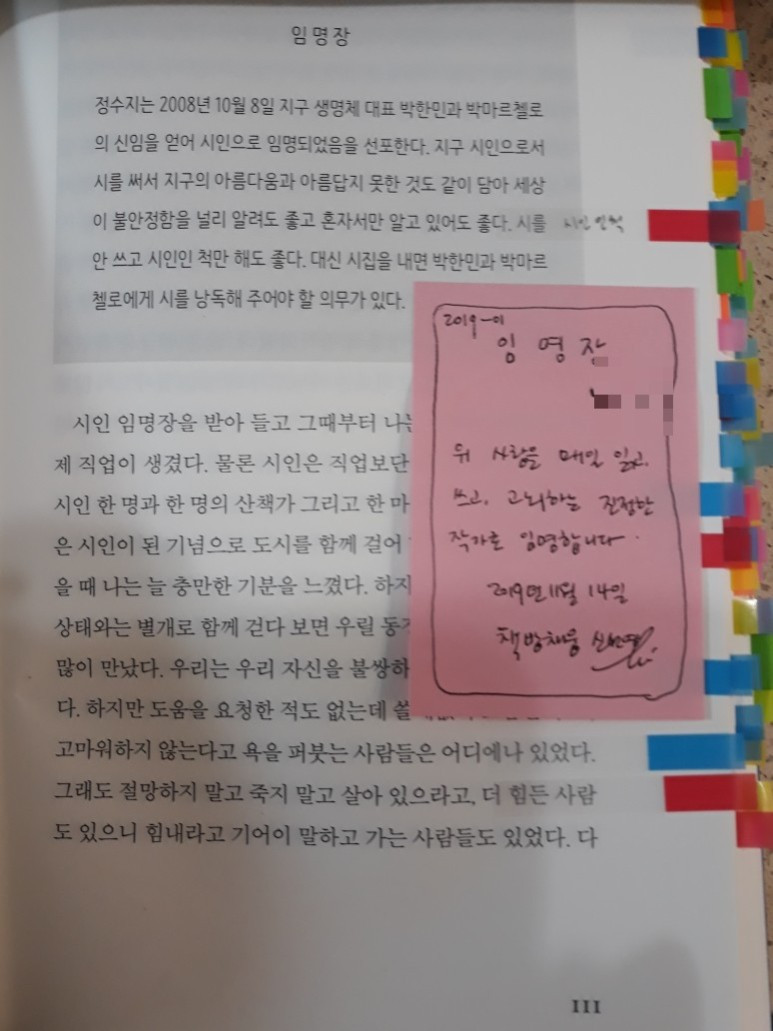 임명장
정수지는 2008년 10월 8일 지구 생명체 대표 박한민과 박마르첼로
의 신임을 얻어 시인으로 임명되었음을 선포한다. 지구 시인으로서
시를 써서 지구의 아름다움과 아름답지 못한 것도 같이 담아 세상
이 불안정함을 널리 알려도 좋고 혼자서만 알고 있어도 좋다. 시를
안 쓰고 시인인 척만 해도 좋다. 대신 시집을 내면 박한민과 박마르
첼로에게 시를 낭독해 주어야 할 의무가 있다.
시인 임명장을 받아 들고 그때부터 나는
제 직업이 생겼다. 물론 시인은 직업보단
시인 한 명과 한 명의 산책가 그리고 한 마
은 시인이 된 기념으로 도시를 함께 걸어
을 때 나는 늘 충만한 기분을 느꼈다. 하지
상태와는 별개로 함께 걷다 보면 우릴 동
많이 만났다. 우리는 우리 자신을 불쌍하
다. 하지만 도움을 요청한 적도 없는데
고마워하지 않는다고 욕을 퍼붓는 사람들은 어디에나 있었다.
그래도 절망하지 말고 죽지 말고 살아 있으라고, 더 힘든 사람
도 있으니 힘내라고 기어이 말하고 가는 사람들도 있었다. 다
111
2019-01
임명장
위 사람을 매일 읽고,
쓰고, 고뇌하는 진정한
작가로 임명합니다.
2019년 11월 14일
책방채움